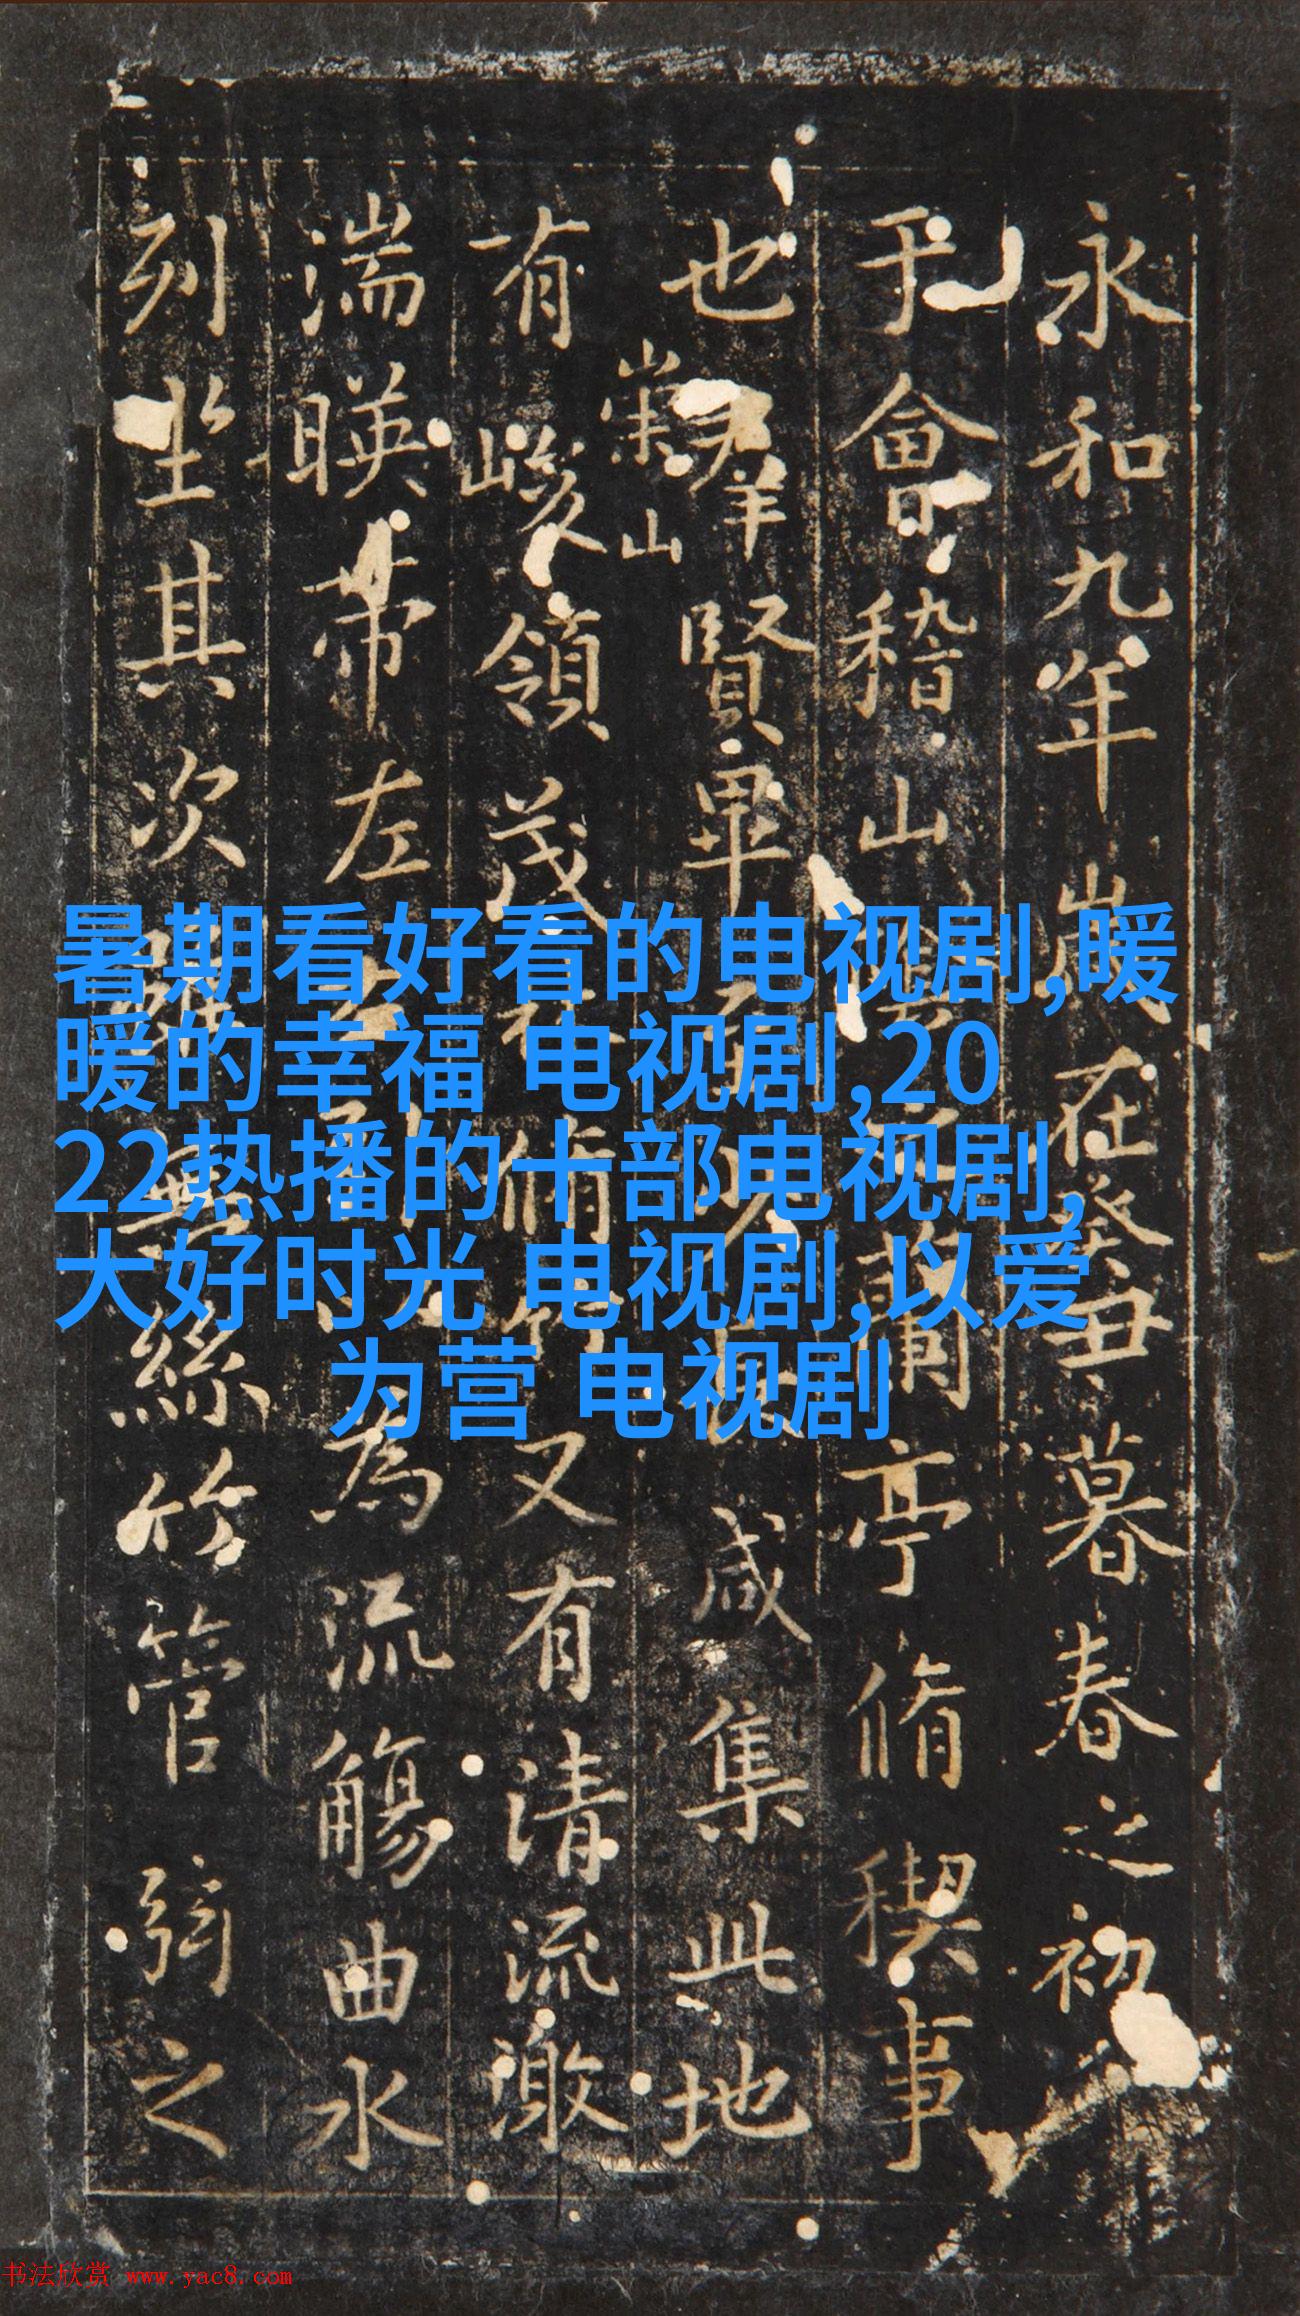 永和九年歲在癸丑暮春之初
于會稽山陰之蘭亭脩稧事
也羣賢畢至少長咸集此地
崇山
有峻領茂林脩竹又有清流激
湍暎帶左右引以為流觴曲水
列坐其次雖無絲竹管弦之
暑期看好看的电视剧,暖
暖的幸福 电视剧,20
22热播的十部电视剧,
大好时光 电视剧,以爱
为营 电视剧
书法欣赏 www.yac8.com